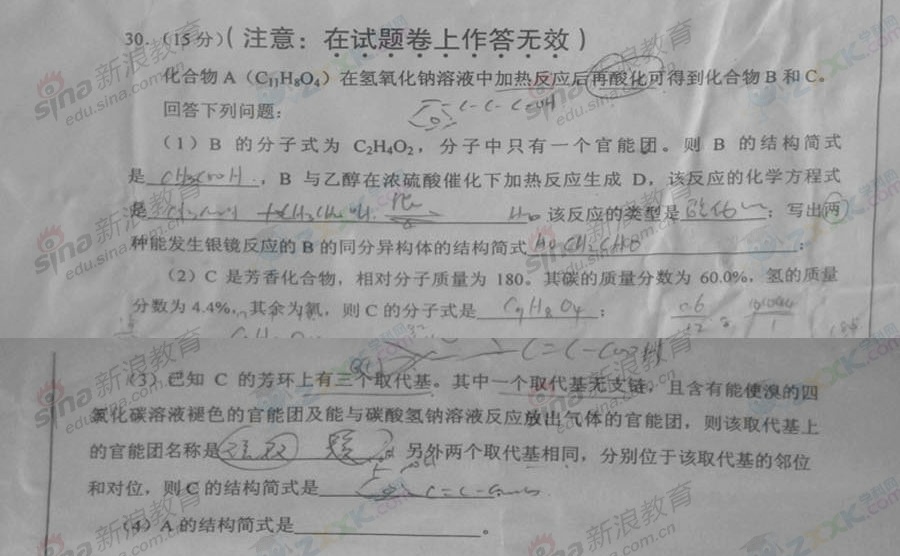 30.（15分）（注意：在试题卷上作答无效）
化合物 A（C₁₁H₈O₄）在氢氧化钠溶液中加热反应后再酸化可得到化合物 B 和 C。
回答下列问题：
（1）B 的分子式为 C₂H₄O₂，分子中只有一个官能团。则 B 的结构简式
是 CH3COOH，B 与乙醇在浓硫酸催化下加热反应生成 D，该反应的化学方程式
是 该反应的类型是 ；写出两
种能发生银镜反应的 B 的同分异构体的结构简式 HOCH2CHO ；
（2）C 是芳香化合物，相对分子质量为 180。其碳的质量分数为 60.0%，氢的质量
分数为 4.4%，其余为氧，则 C 的分子式是 C9H8O4 ；
（3）已知 C 的芳环上有三个取代基。其中一个取代基无支链，且含有能使溴的四
氯化碳溶液褪色的官能团及能与碳酸氢钠溶液反应放出气体的官能团，则该取代基上
的官能团名称是 。另外两个取代基相同，分别位于该取代基的邻位
和对位，则 C 的结构简式是
（4）A 的结构简式是 。
sina 新浪教育
edu.sina.com.cn